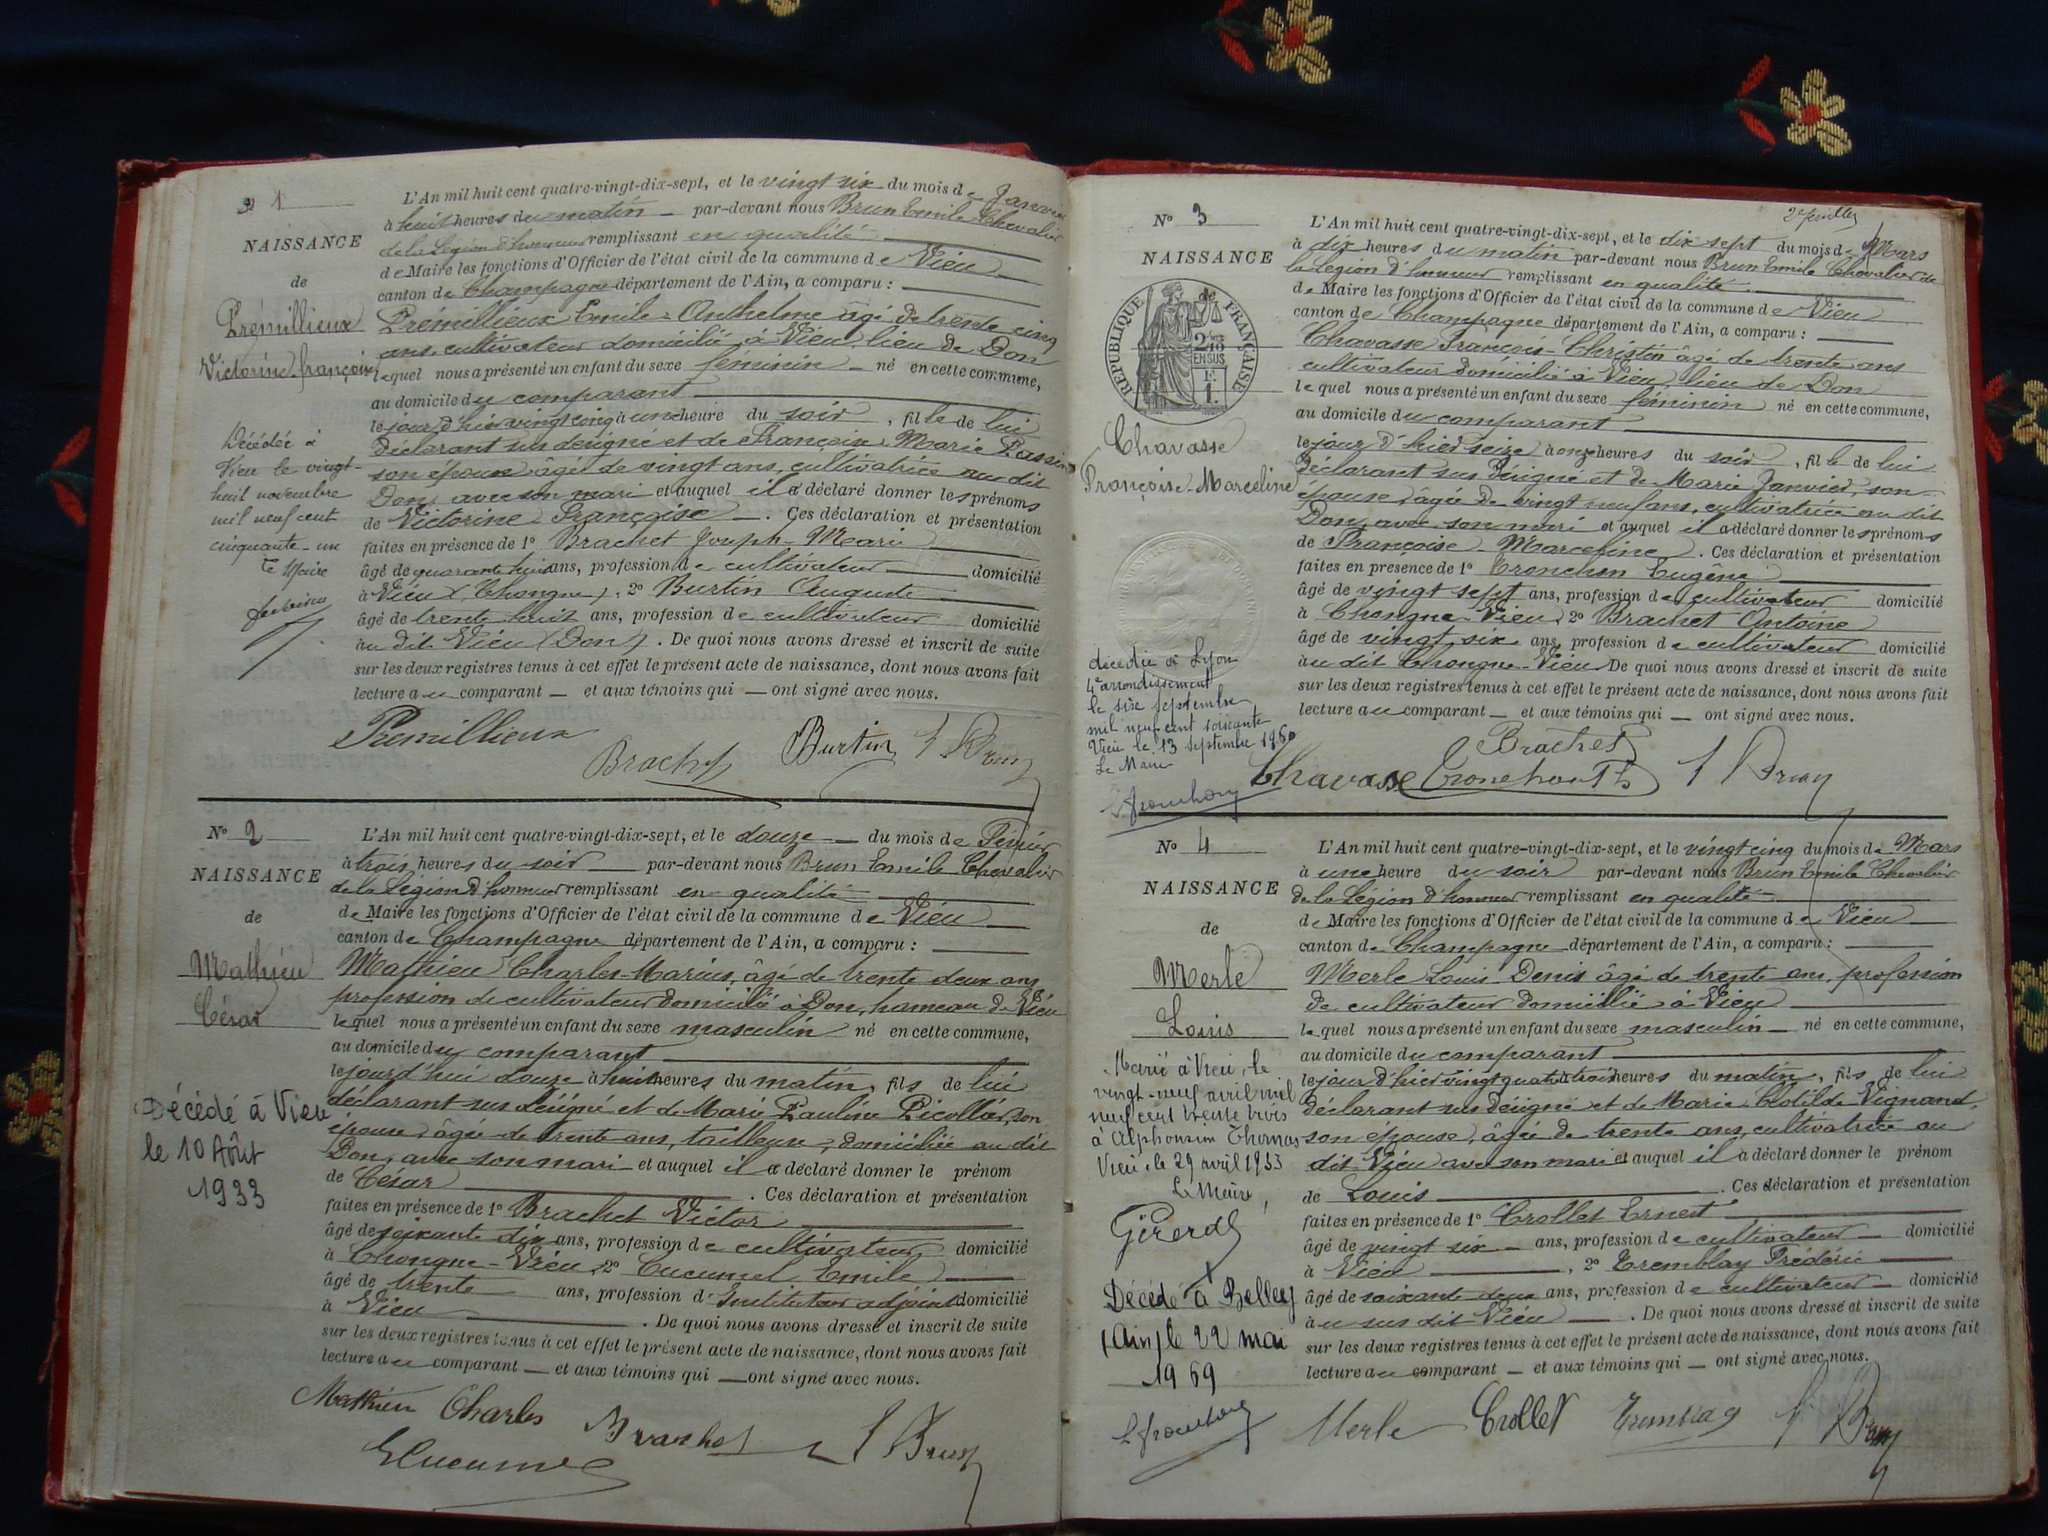 N° 1
NAISSANCE
de
Prémillieux
Victorine françoise
Décédée à
Vieu le vingt-
huit novembre
mil neuf cent
cinquante-un
Le Maire
L'An mil huit cent quatre-vingt-dix-sept, et le vingt six du mois de Janvier
à huit heures du matin par-devant nous Brun Emile Chevalier
de la Légion d'honneur remplissant en qualité
de Maire les fonctions d'Officier de l'état civil de la commune de Vieu
canton de Champagne département de l'Ain, a comparu :
Prémillieux Emile-Anthelme âgé de trente cinq
ans, cultivateur domicilié à Vieu, lieu de Don
lequel nous a présenté un enfant du sexe féminin né en cette commune,
au domicile du comparant
le jour d'hier vingt cinq à une heure du soir, fille de lui
déclarant sus désigné et de Françoise Marie
son épouse âgée de vingt ans, cultivatrice au dit
Don, avec son mari et auquel il a déclaré donner les prénoms
de Victorine Françoise. Ces déclaration et présentation
faites en présence de 1° Brachet Joseph-Marie
âgé de quarante huit ans, profession de cultivateur domicilié
à Vieu (Chongne), 2° Burtin Auguste
âgé de trente huit ans, profession de cultivateur domicilié
au dit Vieu (Don). De quoi nous avons dressé et inscrit de suite
sur les deux registres tenus à cet effet le présent acte de naissance, dont nous avons fait
lecture au comparant et aux témoins qui ont signé avec nous.
Prémillieux
Brachet Burtin Brun
N° 2
NAISSANCE
de
Mathieu
César
Décédé à Vieu
le 10 Août
1933
L'An mil huit cent quatre-vingt-dix-sept, et le douze du mois de Février
à trois heures du soir par-devant nous Brun Emile Chevalier
de la Légion d'honneur remplissant en qualité
de Maire les fonctions d'Officier de l'état civil de la commune de Vieu
canton de Champagne département de l'Ain, a comparu :
Mathieu Charles-Marius, âgé de trente deux ans
profession de cultivateur domicilié à Don, hameau de Vieu
lequel nous a présenté un enfant du sexe masculin né en cette commune,
au domicile du comparant
le jourd'hui douze à huit heures du matin, fils de lui
déclarant sus désigné et de Marie Pauline Picollier, son
épouse, âgée de trente ans, tailleuse, domiciliée au dit
Don, avec son mari et auquel il a déclaré donner le prénom
de César. Ces déclaration et présentation
faites en présence de 1° Brachet Victor
âgé de soixante dix ans, profession de cultivateur domicilié
à Chongne-Vieu, 2° Cucumel Emile
âgé de trente ans, profession d'Instituteur adjoint domicilié
à Vieu. De quoi nous avons dressé et inscrit de suite
sur les deux registres tenus à cet effet le présent acte de naissance, dont nous avons fait
lecture au comparant et aux témoins qui ont signé avec nous.
Mathieu Charles Brachet Brun
E Cucumel
N° 3
NAISSANCE
de
REPUBLIQUE FRANÇAISE
2/10 EN SUS
F. 1.
Chavasse
Françoise-Marceline
décédée à Lyon
4e arrondissement
le six septembre
mil neuf cent soixante
Vieu le 13 Septembre 1960
Le Maire
2e feuillet
L'An mil huit cent quatre-vingt-dix-sept, et le dix sept du mois de Mars
à dix heures du matin par-devant nous Brun Emile Chevalier de
la Légion d'honneur remplissant en qualité
de Maire les fonctions d'Officier de l'état civil de la commune de Vieu
canton de Champagne département de l'Ain, a comparu :
Chavasse François-Christin âgé de trente ans
cultivateur domicilié à Vieu, lieu de Don
lequel nous a présenté un enfant du sexe féminin né en cette commune,
au domicile du comparant
le jour d'hier seize à onze heures du soir, fille de lui
déclarant sus désigné et de Marie Janvier, son
épouse, âgée de vingt neuf ans, cultivatrice au dit
Don, avec son mari et auquel il a déclaré donner les prénoms
de Françoise-Marceline. Ces déclaration et présentation
faites en présence de 1° Tronchon Eugène
âgé de vingt sept ans, profession de cultivateur domicilié
à Chongne-Vieu, 2° Brachet Antoine
âgé de vingt six ans, profession de cultivateur domicilié
au dit Chongne-Vieu De quoi nous avons dressé et inscrit de suite
sur les deux registres tenus à cet effet le présent acte de naissance, dont nous avons fait
lecture au comparant et aux témoins qui ont signé avec nous.
Brachet
Chavasse Tronchon Brun
N° 4
NAISSANCE
de
Merle
Louis
Marié à Vieu, le
vingt-neuf avril mil
neuf cent trente trois
à Alphonsine Thomas
Vieu, le 29 avril 1933
Le Maire,
Décédé à Belley
(Ain) le 22 mai
1969
L'An mil huit cent quatre-vingt-dix-sept, et le vingt cinq du mois de Mars
à une heure du soir par-devant nous Brun Emile Chevalier
de la Légion d'honneur remplissant en qualité
de Maire les fonctions d'Officier de l'état civil de la commune de Vieu
canton de Champagne département de l'Ain, a comparu :
Merle Louis Denis âgé de trente ans, profession
de cultivateur domicilié à Vieu
lequel nous a présenté un enfant du sexe masculin né en cette commune,
au domicile du comparant
le jour d'hier vingt quatre à trois heures du matin, fils de lui
déclarant sus désigné et de Marie-Clotilde Vignand,
son épouse, âgée de trente ans, cultivatrice au
dit Vieu avec son mari et auquel il a déclaré donner le prénom
de Louis. Ces déclaration et présentation
faites en présence de 1° Crollet Ernest
âgé de vingt six ans, profession de cultivateur domicilié
à Vieu, 2° Tremblay Frédéric
âgé de soixante deux ans, profession de cultivateur domicilié
au sus dit Vieu. De quoi nous avons dressé et inscrit de suite
sur les deux registres tenus à cet effet le présent acte de naissance, dont nous avons fait
lecture au comparant et aux témoins qui ont signé avec nous.
Merle Crollet Tremblay Brun